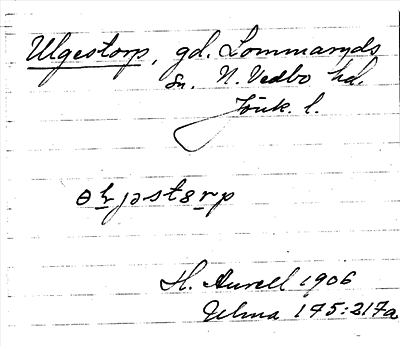 Ulgestorp, gd. Lommaryds
sn. N. Vedbo hd.
Jönk. l.
H. Aurell 1906
Ulma 175:217a